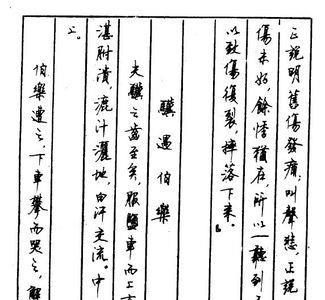 正說明舊傷發痛,叫聲悲,正說
傷未好,餘悸猶在,所以一聽到
以致傷復裂,摔落下來。
驥遇伯樂
夫驥之齒至矣,服鹽車而上
湛胕潰,漉汁灑地,白汗交流。中
上。
伯樂遭之,下車攀而哭之,解